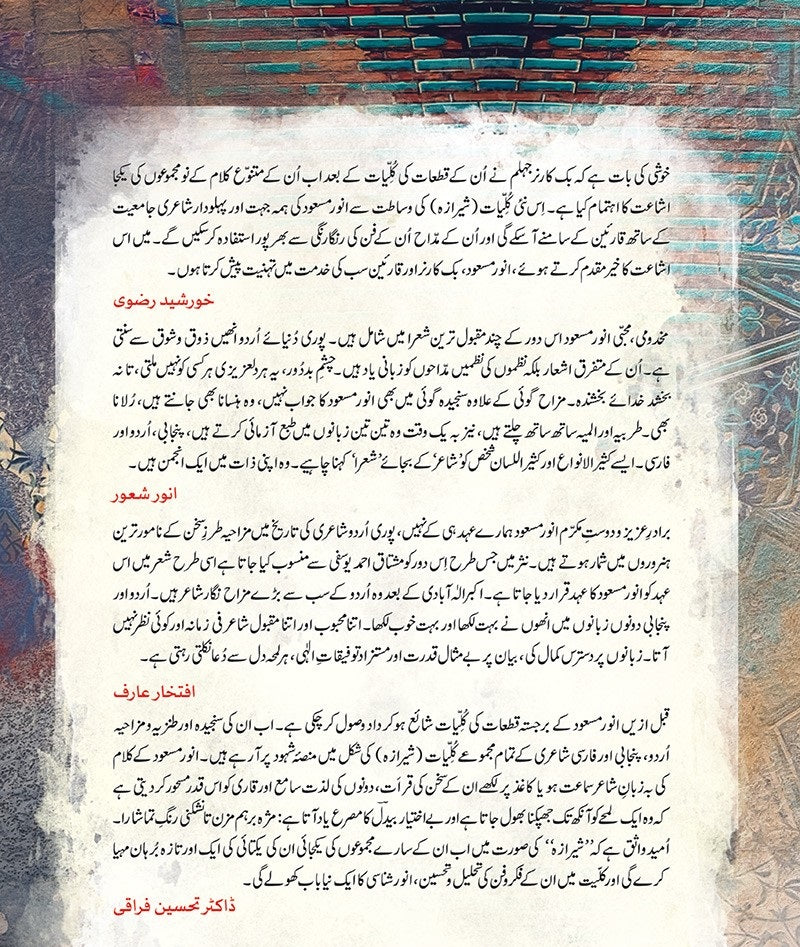 خوشی کی بات ہے کہ بک کارنر جہلم نے اُن کے قطعات کی کُلّیات کے بعد اب اُن کے متنوّع کلام کے نو مجموعوں کی یکجا
اشاعت کا اہتمام کیا ہے۔ اِس نئی کُلّیات (شیرازہ) کی وساطت سے انور مسعود کی ہمہ جہت اور پہلودار شاعری جامعیت
کے ساتھ قارئین کے سامنے آسکے گی اور اُن کے مدّاح اُن کے فن کی رنگارنگی سے بھرپور استفادہ کرسکیں گے۔ میں اس
اشاعت کا خیر مقدم کرتے ہوئے، انور مسعود، بک کارنر اور قارئین سب کی خدمت میں تہنیت پیش کرتا ہوں۔
خورشید رضوی
مخدومی، محبّی انور مسعود اس دور کے چند مقبول ترین شعرا میں شامل ہیں۔ پوری دُنیائے اُردو انھیں ذوق و شوق سے سنتی
ہے۔ اُن کے متفرق اشعار بلکہ نظموں کی نظمیں مدّاحوں کو زبانی یاد ہیں۔ چشمِ بد دُور، یہ ہردلعزیزی ہر کسی کو نہیں ملتی، تا نہ
بخشد خدائے بخشندہ۔ مزاح گوئی کے علاوہ سنجیدہ گوئی میں بھی انور مسعود کا جواب نہیں، وہ ہنسانا بھی جانتے ہیں، رُلانا
بھی۔ طربیہ اور المیہ ساتھ ساتھ چلتے ہیں، نیز بہ یک وقت وہ تین تین زبانوں میں طبع آزمائی کرتے ہیں، پنجابی، اُردو اور
فارسی۔ ایسے کثیر الانواع اور کثیر اللسان شخص کو ’شاعر‘ کے بجائے ’شعرا‘ کہنا چاہیے۔ وہ اپنی ذات میں ایک انجمن ہیں۔
انور شعور
برادرِ عزیز و دوستِ مکرّم انور مسعود ہمارے عہد ہی کے نہیں، پوری اُردو شاعری کی تاریخ میں مزاحیہ طرزِ سخن کے نامور ترین
ہنروروں میں شمار ہوتے ہیں۔ نثر میں جس طرح اِس دور کو مشتاق احمد یوسفی سے منسوب کیا جاتا ہے اسی طرح شعر میں اس
عہد کو انور مسعود کا عہد قرار دیا جاتا ہے۔ اکبر الہٰ آبادی کے بعد وہ اُردو کے سب سے بڑے مزاح نگار شاعر ہیں۔ اُردو اور
پنجابی دونوں زبانوں میں انھوں نے بہت لکھا اور بہت خوب لکھا۔ اتنا محبوب اور اتنا مقبول شاعر فی زمانہ اور کوئی نظر نہیں
آتا۔ زبانوں پر دسترس کمال کی، بیان پر بے مثال قدرت اور مستزاد توفیقاتِ الٰہی، ہر لمحہ دل سے دُعا نکلتی رہتی ہے۔
افتخار عارف
قبل ازیں انور مسعود کے برجستہ قطعات کی کُلّیات شائع ہو کر داد وصول کر چکی ہے۔ اب ان کی سنجیدہ اور طنزیہ و مزاحیہ
اُردو، پنجابی اور فارسی شاعری کے تمام مجموعے کُلّیات (شیرازہ) کی شکل میں منصۂ شہود پر آ رہے ہیں۔ انور مسعود کے کلام
کی بہ زبانِ شاعر سماعت ہو یا کاغذ پر لکھے ان کے سخن کی قرأت، دونوں کی لذت سامع اور قاری کو اس قدر مسحور کر دیتی ہے
کہ وہ ایک لمحے کو آنکھ تک جھپکنا بھول جاتا ہے اور بے اختیار بیدلؔ کا مصرع یاد آتا ہے: مژہ برہم مزن تا نشکنی رنگِ تماشا را۔
اُمید واثق ہے کہ ’’شیرازہ‘‘ کی صورت میں اب ان کے سارے مجموعوں کی یکجائی ان کی یکتائی کی ایک اور تازہ بُرہان مہیا
کرے گی اور کلّیت میں ان کے فکر و فن کی تحلیل و تحسین، انور شناسی کا ایک نیا باب کھولے گی۔
ڈاکٹر تحسین فراقی